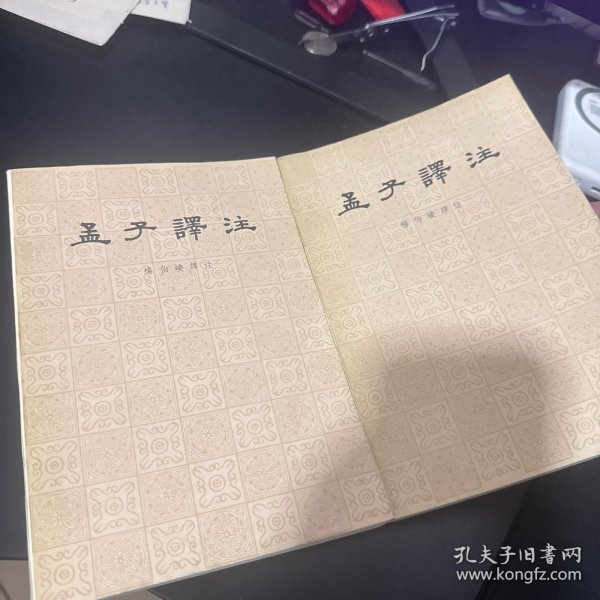 孟子譯注
楊伯峻譯注
孟子譯注
楊伯峻譯注
孔夫子旧書网
www.kongfz.com